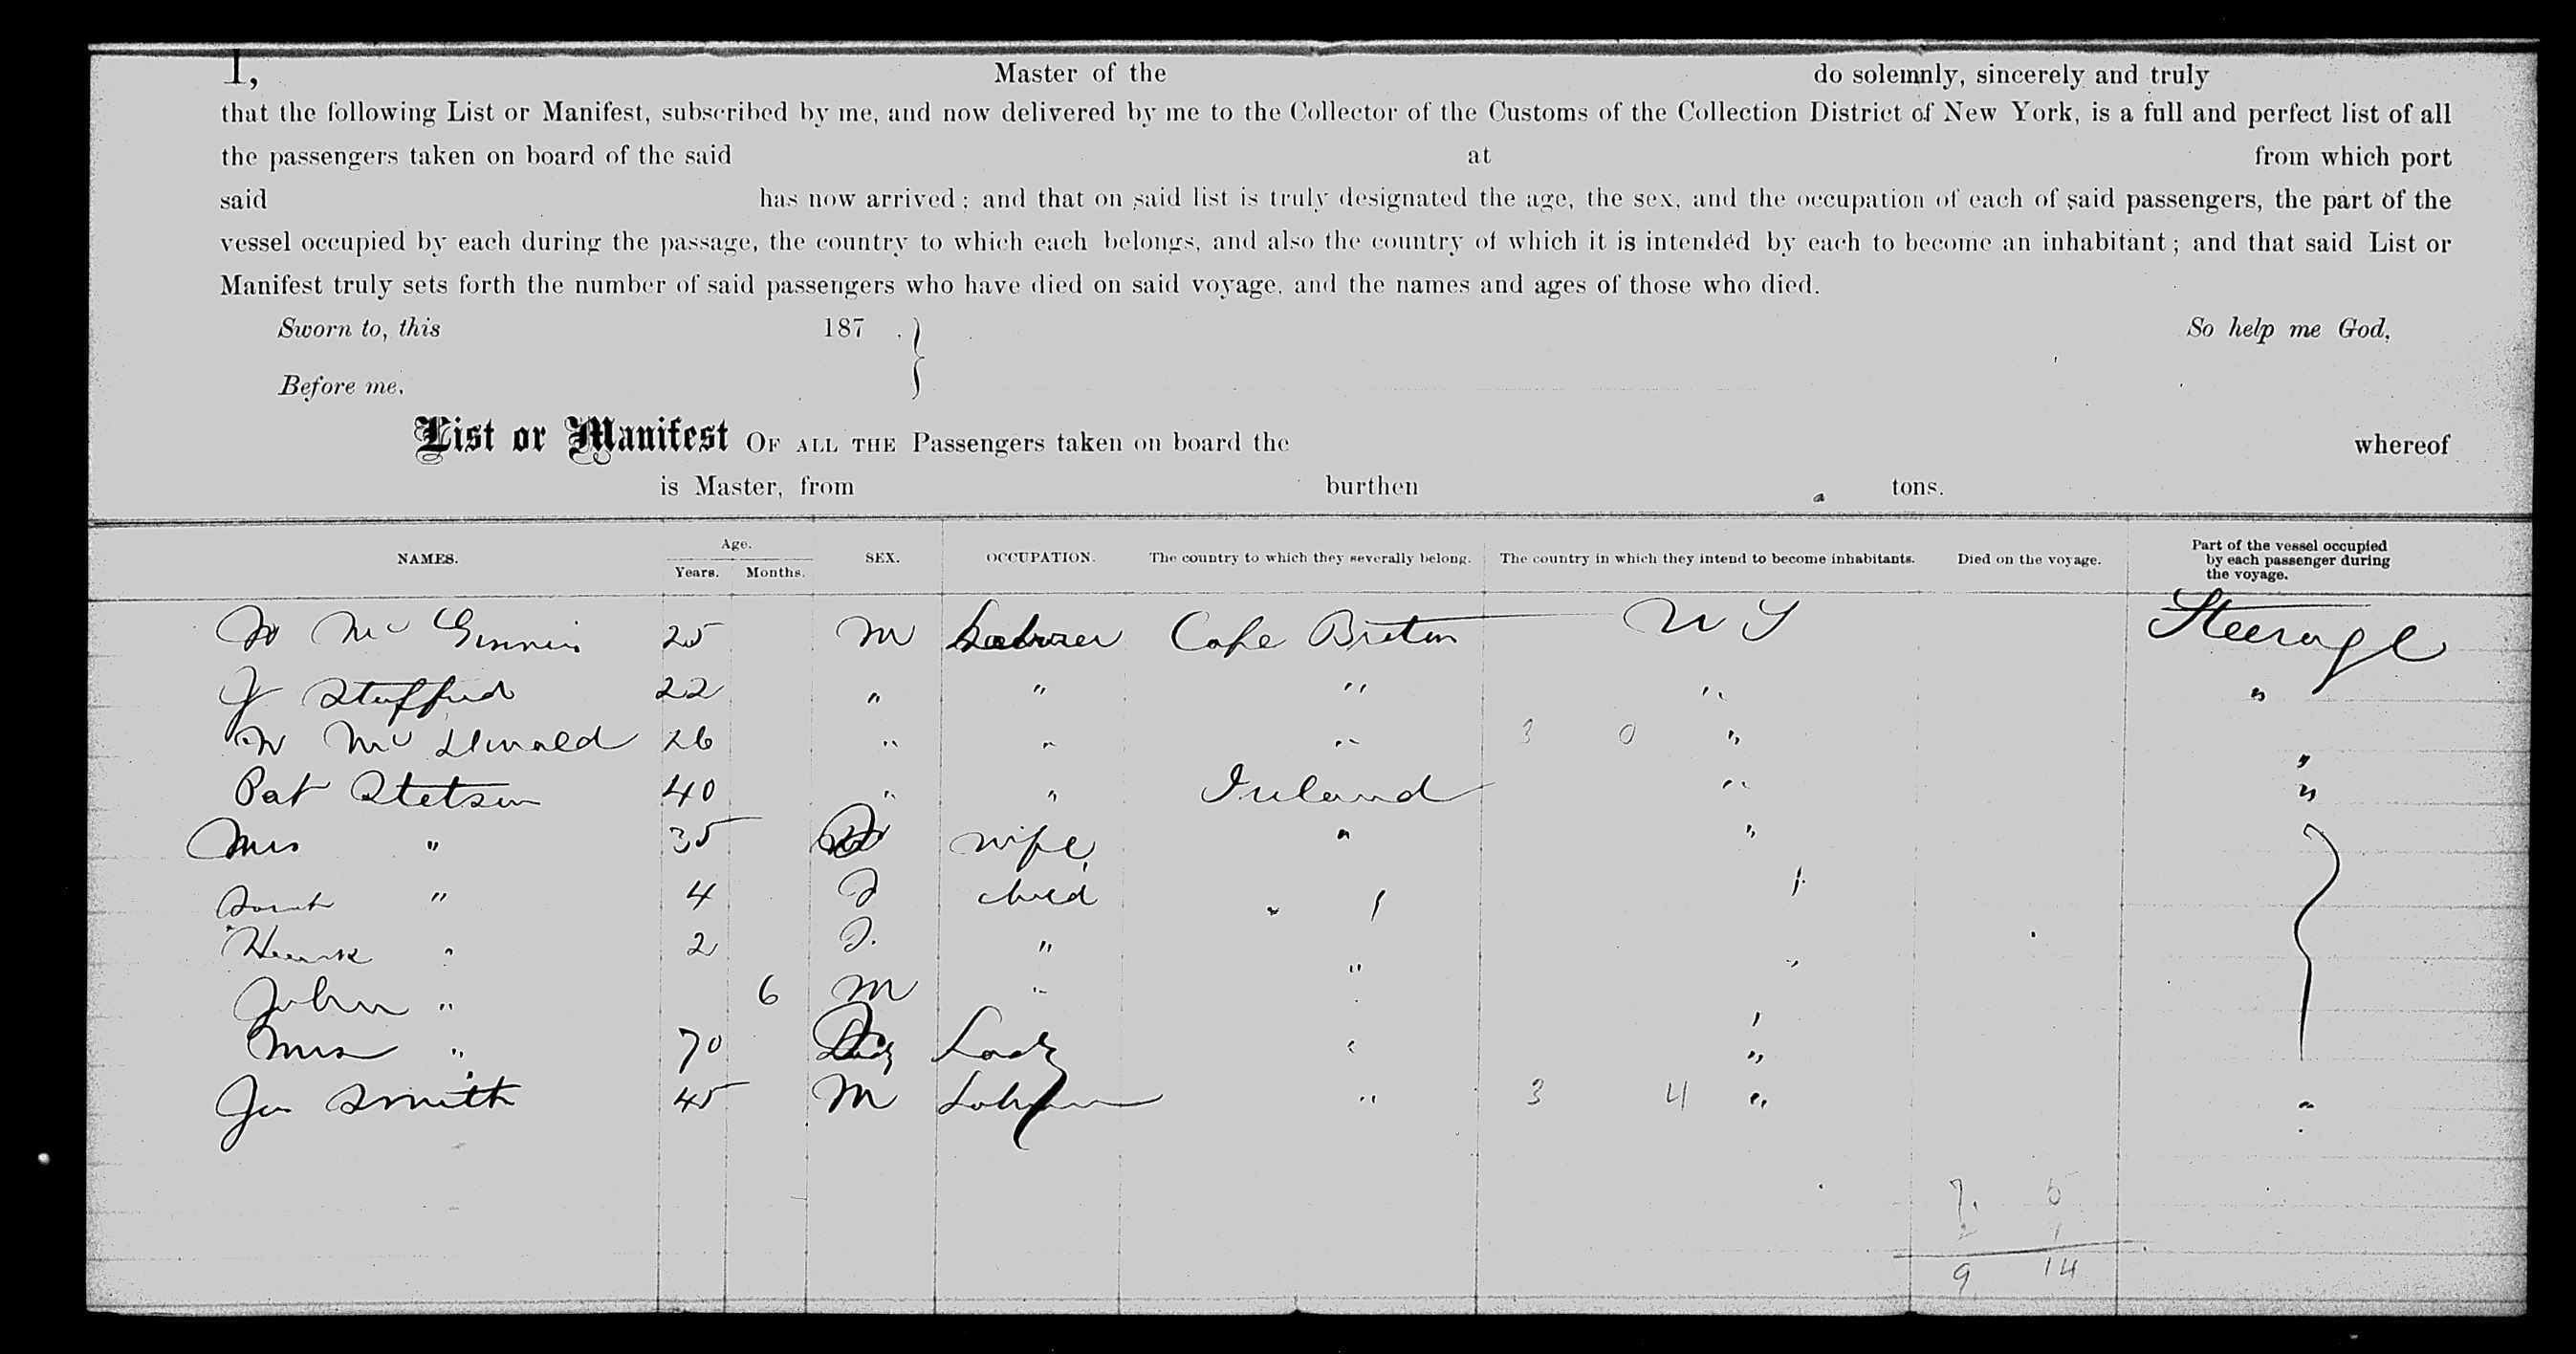 I, Master of the do solemnly, sincerely and truly
that the following List or Manifest, subscribed by me, and now delivered by me to the Collector of the Customs of the Collection District of New York, is a full and perfect list of all
the passengers taken on board of the said at from which port
said has now arrived; and that on said list is truly designated the age, the sex, and the occupation of each of said passengers, the part of the
vessel occupied by each during the passage, the country to which each belongs, and also the country of which it is intended by each to become an inhabitant; and that said List or
Manifest truly sets forth the number of said passengers who have died on said voyage, and the names and ages of those who died.
Sworn to, this 187 . So help me God,
Before me,
List or Manifest OF ALL THE Passengers taken on board the whereof
is Master, from burthen tons.
NAMES. Age. Years. Months. SEX. OCCUPATION. The country to which they severally belong. The country in which they intend to become inhabitants. Died on the voyage. Part of the vessel occupied by each passenger during the voyage.
Mc Ginnis 25 M Laborer Cape Breton Steerage
Stafford 22 " " " " "
Mc Donald 26 " " " 3 0 " "
Pat Stetson 40 " " Ireland " "
Mrs " 35 F wife " "
Sarah " 4 F child " "
" 2 F. " " "
John " 6 M " " "
Mrs " 70 Lady " "
Smith 45 M " 3 4 " "
7. 5
2 1
9 14